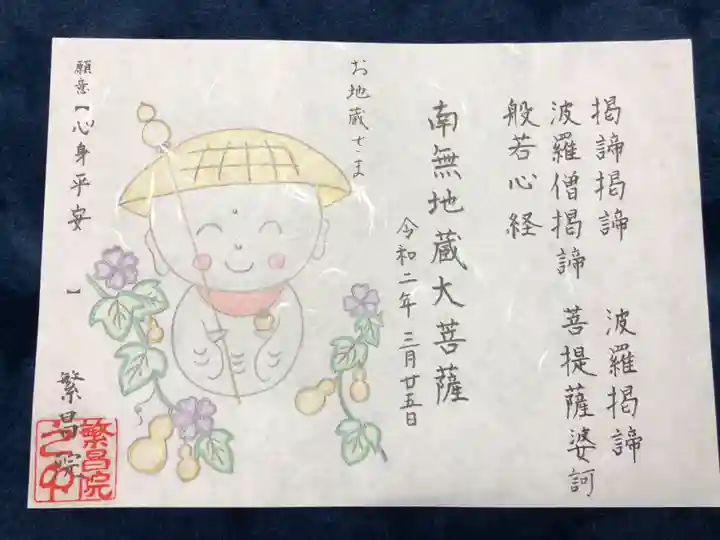 掲諦掲諦　波羅掲諦
波羅僧掲諦　菩提薩婆訶
般若心経
南無地蔵大菩薩
令和二年 三月廿五日
お地蔵さま
願意【心身平安　】
繁昌院
繁昌院